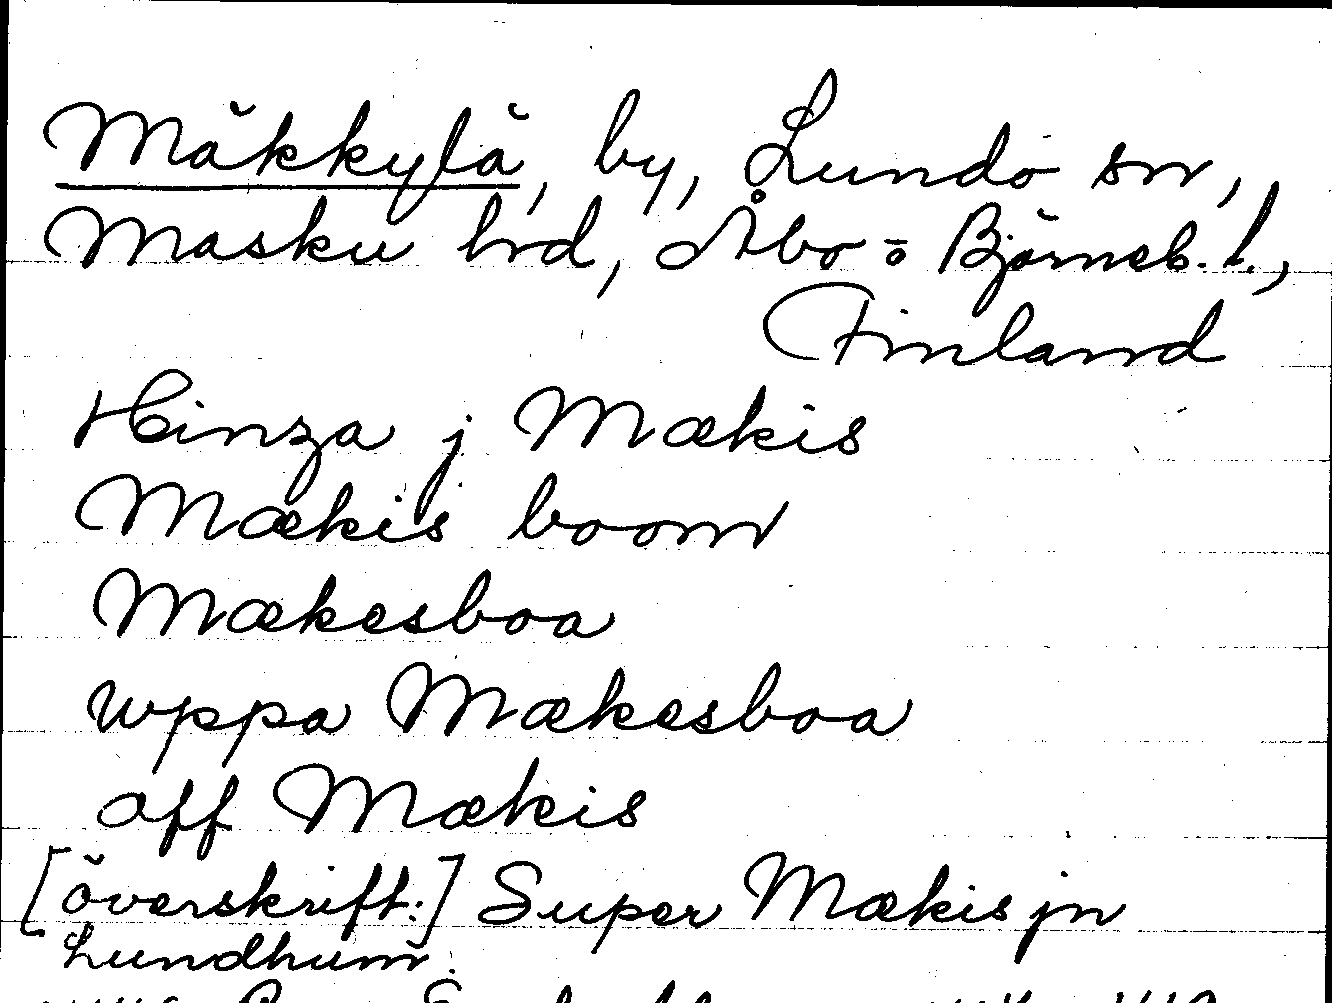 Mäkkylä, by, Lundo sn,
Masku hrd, Åbo o Björneb. l.,
Finland
Hinza j Mækis
Mækis boom
Mækesboa
wppa Mækesboa
aff Mækis
[överskrift:] Super Mækis jn
Lundhum.